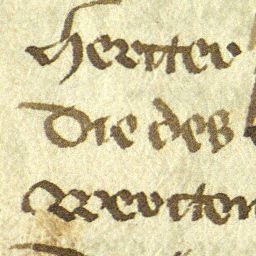 hertter
Die des
Wertten